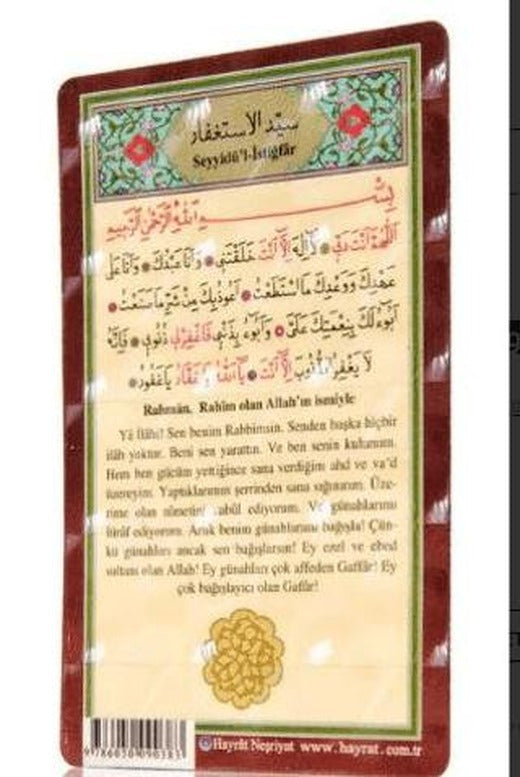 سيّد الاستغفار
Seyyidü'l-İstiğfâr
بِسْمِ اللهِ الرَّحْمٰنِ الرَّحِيمِ
اَللّٰهُمَّ اَنْتَ رَبِّي لَٓا اِلٰهَ اِلَّٓا اَنْتَ خَلَقْتَنِي وَاَنَا عَبْدُكَ وَاَنَا عَلٰى
عَهْدِكَ وَوَعْدِكَ مَا اسْتَطَعْتُ اَعُوذُ بِكَ مِنْ شَرِّ مَا صَنَعْتُ
اَبُٓوءُ لَكَ بِنِعْمَتِكَ عَلَيَّ وَاَبُٓوءُ بِذَنْبِي فَاغْفِرْلِي ذُنُوبِي فَاِنَّهُ
لَا يَغْفِرُ الذُّنُوبَ اِلَّٓا اَنْتَ يَٓا اَللهُ يَا غَفَّارُ يَا غَفُورُ
Rahmân, Rahîm olan Allah'ın ismiyle
Yâ İlâhî! Sen benim Rabbimsin. Senden başka hiçbir
ilâh yoktur. Beni sen yarattın. Ve ben senin kulunum.
Hem ben gücüm yettiğince sana verdiğim ahd ve va'd
üzereyim. Yaptıklarımın şerrinden sana sığınırım. Üze-
rime olan nimetini kabûl ediyorum. Ve günahlarımı
îtirâf ediyorum. Artık benim günahlarımı bağışla! Çün-
kü günahları ancak sen bağışlarsın! Ey ezel ve ebed
sultanı olan Allah! Ey günahları çok affeden Gaffâr! Ey
çok bağışlayıcı olan Gafûr!
Hayrât Neşriyat www.hayrat.com.tr